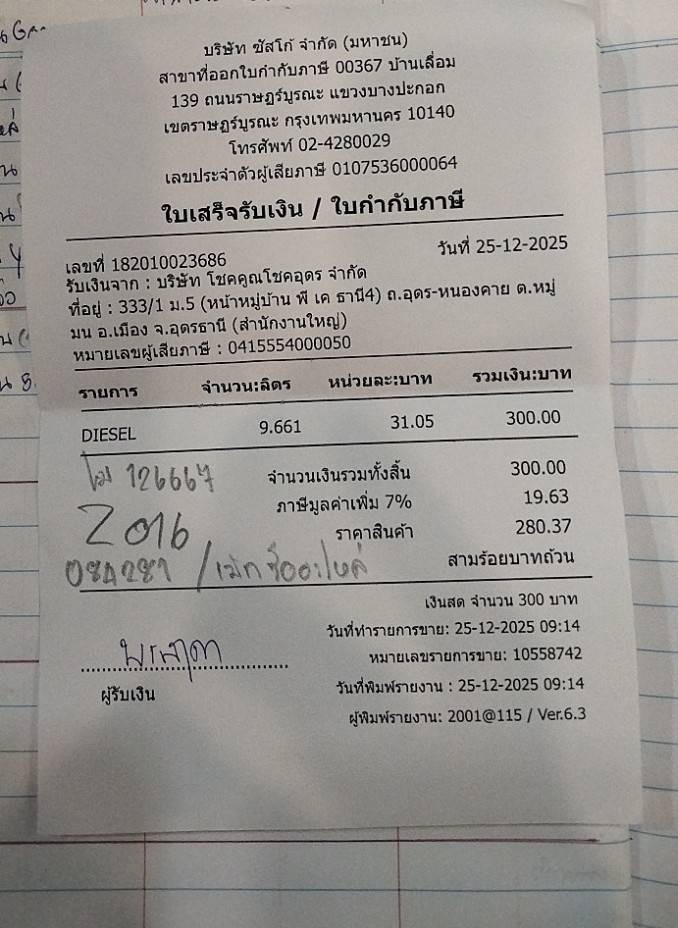 บริษัท ซัสโก้ จำกัด (มหาชน)
สาขาที่ออกใบกำกับภาษี 00367 บ้านเลื่อม
139 ถนนราษฎร์บูรณะ แขวงบางปะกอก
เขตราษฎร์บูรณะ กรุงเทพมหานคร 10140
โทรศัพท์ 02-4280029
เลขประจำตัวผู้เสียภาษี 0107536000064
ใบเสร็จรับเงิน / ใบกำกับภาษี
เลขที่ 182010023686 วันที่ 25-12-2025
รับเงินจาก : บริษัท โชคคูณโชคอุดร จำกัด
ที่อยู่ : 333/1 ม.5 (หน้าหมู่บ้าน พี เค ธานี4) ถ.อุดร-หนองคาย ต.หมู่
มน อ.เมือง จ.อุดรธานี (สำนักงานใหญ่)
หมายเลขผู้เสียภาษี : 0415554000050
รายการ จำนวน:ลิตร หน่วยละ:บาท รวมเงิน:บาท
DIESEL 9.661 31.05 300.00
ไม 126667 จำนวนเงินรวมทั้งสิ้น 300.00
ภาษีมูลค่าเพิ่ม 7% 19.63
2016 ราคาสินค้า 280.37
สามร้อยบาทถ้วน
เงินสด จำนวน 300 บาท
วันที่ทำรายการขาย: 25-12-2025 09:14
หมายเลขรายการขาย: 10558742
ผู้รับเงิน วันที่พิมพ์รายงาน : 25-12-2025 09:14
ผู้พิมพ์รายงาน: 2001@115 / Ver.6.3